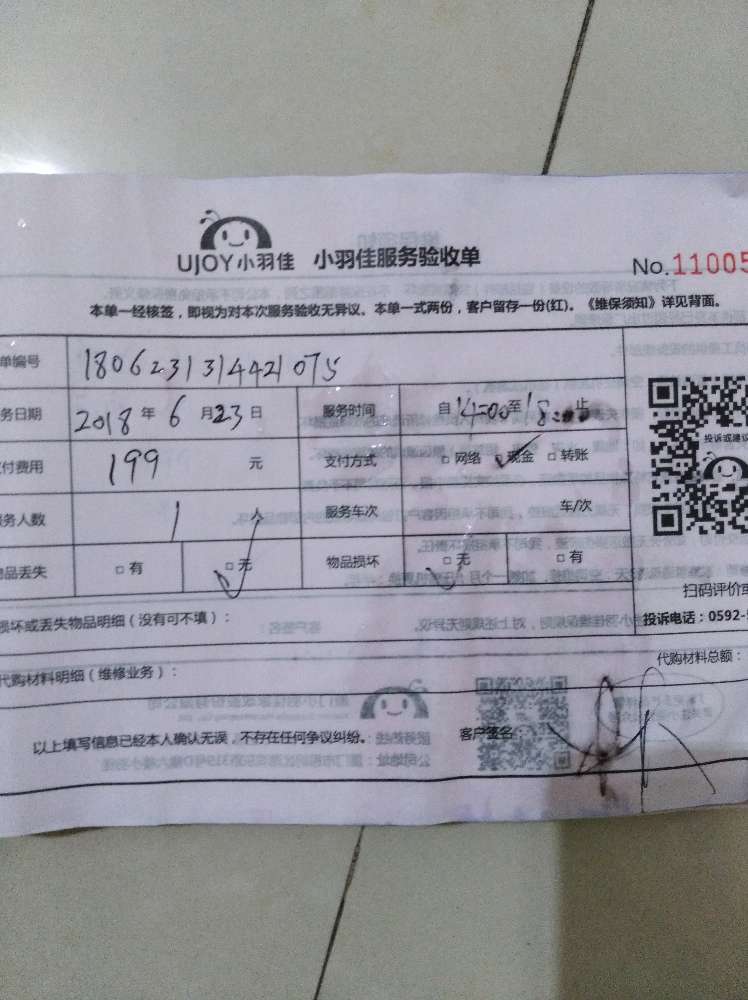 UJOY小羽佳 小羽佳服务验收单
No.11005
本单一经核签，即视为对本次服务验收无异议。本单一式两份，客户留存一份(红)。《维保须知》详见背面。
单编号 1806231314421075
务日期 2018年6月23日 服务时间 自14:00至18:00止
付费用 199 元 支付方式 □网络 □现金 □转账
务人数 1 人 服务车次 车/次
物品丢失 □有 □无 物品损坏 □无 □有
投诉或建议
扫码评价或
投诉电话：0592-5
损坏或丢失物品明细（没有可不填）：
代购材料明细（维修业务）： 代购材料总额：
以上填写信息已经本人确认无误，不存在任何争议纠纷。 客户签名：